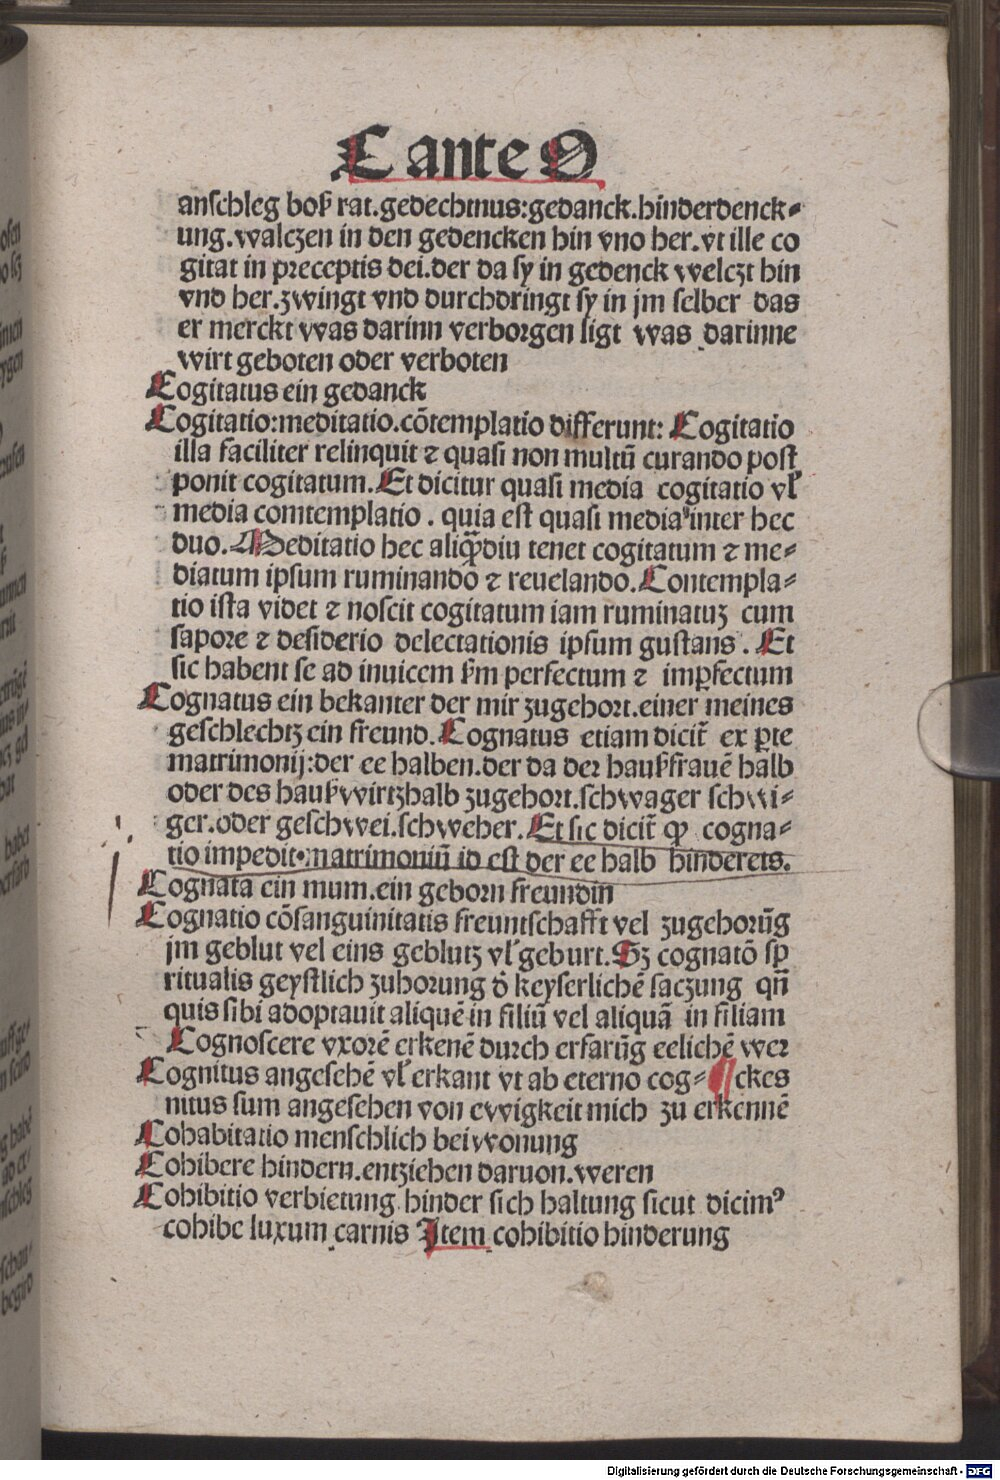 C ante O
anschleg boß rat.gedechtnus:gedanck.hinderdenck-
ung.walczen in den gedencken hin vno her.vt ille co
gitat in preceptis dei.der da sy in gedenck welczt hin
vnd her.zwingt vnd durchdringt sy in jm selber das
er merckt was darinn verborgen ligt was darinne
wirt geboten oder verboten
Cogitatus ein gedanck
Cogitatio:meditatio.cõtemplatio differunt: Cogitatio
illa faciliter relinquit ⁊ quasi non multũ curando post
ponit cogitatum.Et dicitur quasi media cogitatio vl̛
media comtemplatio . quia est quasi media inter hec
duo.Meditatio hec aliq̃diu tenet cogitatum ⁊ me-
diatum ipsum ruminando ⁊ reuelando.Contempla-
tio ista videt ⁊ noscit cogitatum iam ruminatuꝫ cum
sapore ⁊ desiderio delectationis ipsum gustans . Et
sic habent se ad inuicem ẜm perfectum ⁊ imꝑfectum
Cognatus ein bekanter der mir zugehort.einer meines
geschlechtz ein freund.Cognatus etiam dicit̃ ex ꝑte
matrimonij:der ee halben.der da der haußfrauẽ halb
oder des haußwirtzhalb zugehort.schwager schwi-
ger.oder geschwei.schweher.Et sic dicit̃ ꝙ cogna-
tio impedit matrimoniũ id est der ee halb hinderets.
Cognata ein mum.ein geborn freundin
Cognatio cõsanguinitatis freuntschafft vel zugehorũg
jm geblut vel eins geblutz vl̛ geburt.Sꝫ cognatõ sp
ritualis geystlich zuhorung d̛ keyserlichẽ saczung qñ
quis sibi adoptauit aliquẽ in filiũ vel aliquã in filiam
Cognoscere vxorẽ erkenẽ durch erfarũg eelichẽ wer
Cognitus angesehẽ vl̛ erkant vt ab eterno cog- ¶ ckes
nitus sum angesehen von ewigkeit mich zu erkennẽ
Cohabitatio menschlich beiwonung
Cohibere hindern.entziehen daruon.weren
Cohibitio verbietung hinder sich haltung sicut dicimꝰ
cohibe luxum carnis Item cohibitio hinderung
Digitalisierung gefördert durch die Deutsche Forschungsgemeinschaft - DFG